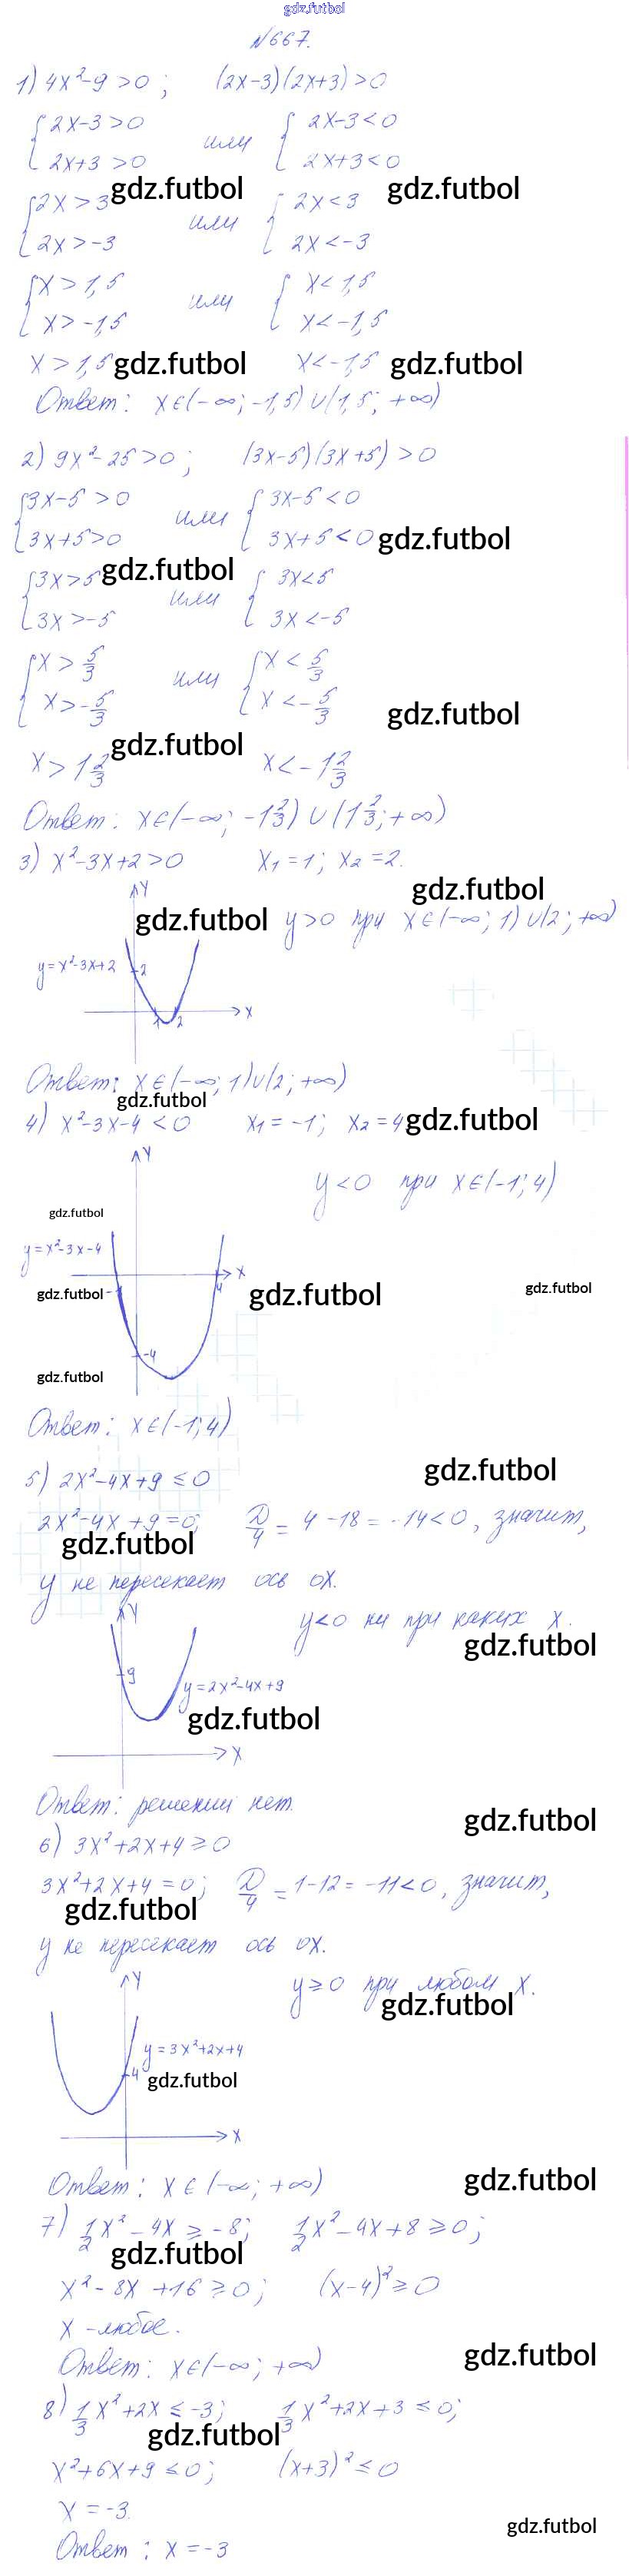 gdz.futbol
№667.
1) 4x²-9>0; (2x-3)(2x+3)>0
{2x-3>0 или {2x-3<0
2x+3>0 2x+3<0
gdz.futbol gdz.futbol
{2x>3 или {2x<3
2x>-3 2x<-3
{x>1,5 или {x<1,5
x>-1,5 x<-1,5
x>1,5 gdz.futbol x<-1,5 gdz.futbol
Ответ: x∈(-∞; -1,5)∪(1,5; +∞)
2) 9x²-25>0; (3x-5)(3x+5)>0
{3x-5>0 или {3x-5<0
3x+5>0 3x+5<0 gdz.futbol
{3x>5 gdz.futbol или {3x<5
3x>-5 3x<-5
{x>5/3 или {x<5/3
x>-5/3 x<-5/3 gdz.futbol
x>1 2/3 gdz.futbol x<-1 2/3
Ответ: x∈(-∞; -1 2/3)∪(1 2/3; +∞)
3) x²-3x+2>0 x₁=1; x₂=2.
gdz.futbol
Y
gdz.futbol y>0 при x∈(-∞; 1)∪(2; +∞)
y=x²-3x+2 2
1 2 X
Ответ: x∈(-∞; 1)∪(2; +∞)
gdz.futbol
4) x²-3x-4<0 x₁=-1; x₂=4 gdz.futbol
Y
y<0 при x∈(-1; 4)
gdz.futbol
y=x²-3x-4
X
gdz.futbol -1 4 gdz.futbol gdz.futbol
-4
gdz.futbol
Ответ: x∈(-1; 4)
gdz.futbol
5) 2x²-4x+9≤0
2x²-4x+9=0; D/4=4-18=-14<0, значит,
gdz.futbol
y не пересекает ось OX.
Y
y<0 ни при каких x.
gdz.futbol
9
y=2x²-4x+9
gdz.futbol
X
Ответ: решений нет.
gdz.futbol
6) 3x²+2x+4≥0
3x²+2x+4=0; D/4=1-12=-11<0, значит,
gdz.futbol
y не пересекает ось OX.
Y
y≥0 при любом x.
gdz.futbol
y=3x²+2x+4
4 gdz.futbol
X
Ответ: x∈(-∞; +∞)
gdz.futbol
7) 1/2x²-4x≥-8; 1/2x²-4x+8≥0;
gdz.futbol
x²-8x+16≥0; (x-4)²≥0
x-любое.
gdz.futbol
Ответ: x∈(-∞; +∞)
8) 1/3x²+2x≤-3; 1/3x²+2x+3≤0;
gdz.futbol
x²+6x+9≤0; (x+3)²≤0
x=-3.
gdz.futbol
Ответ: x=-3